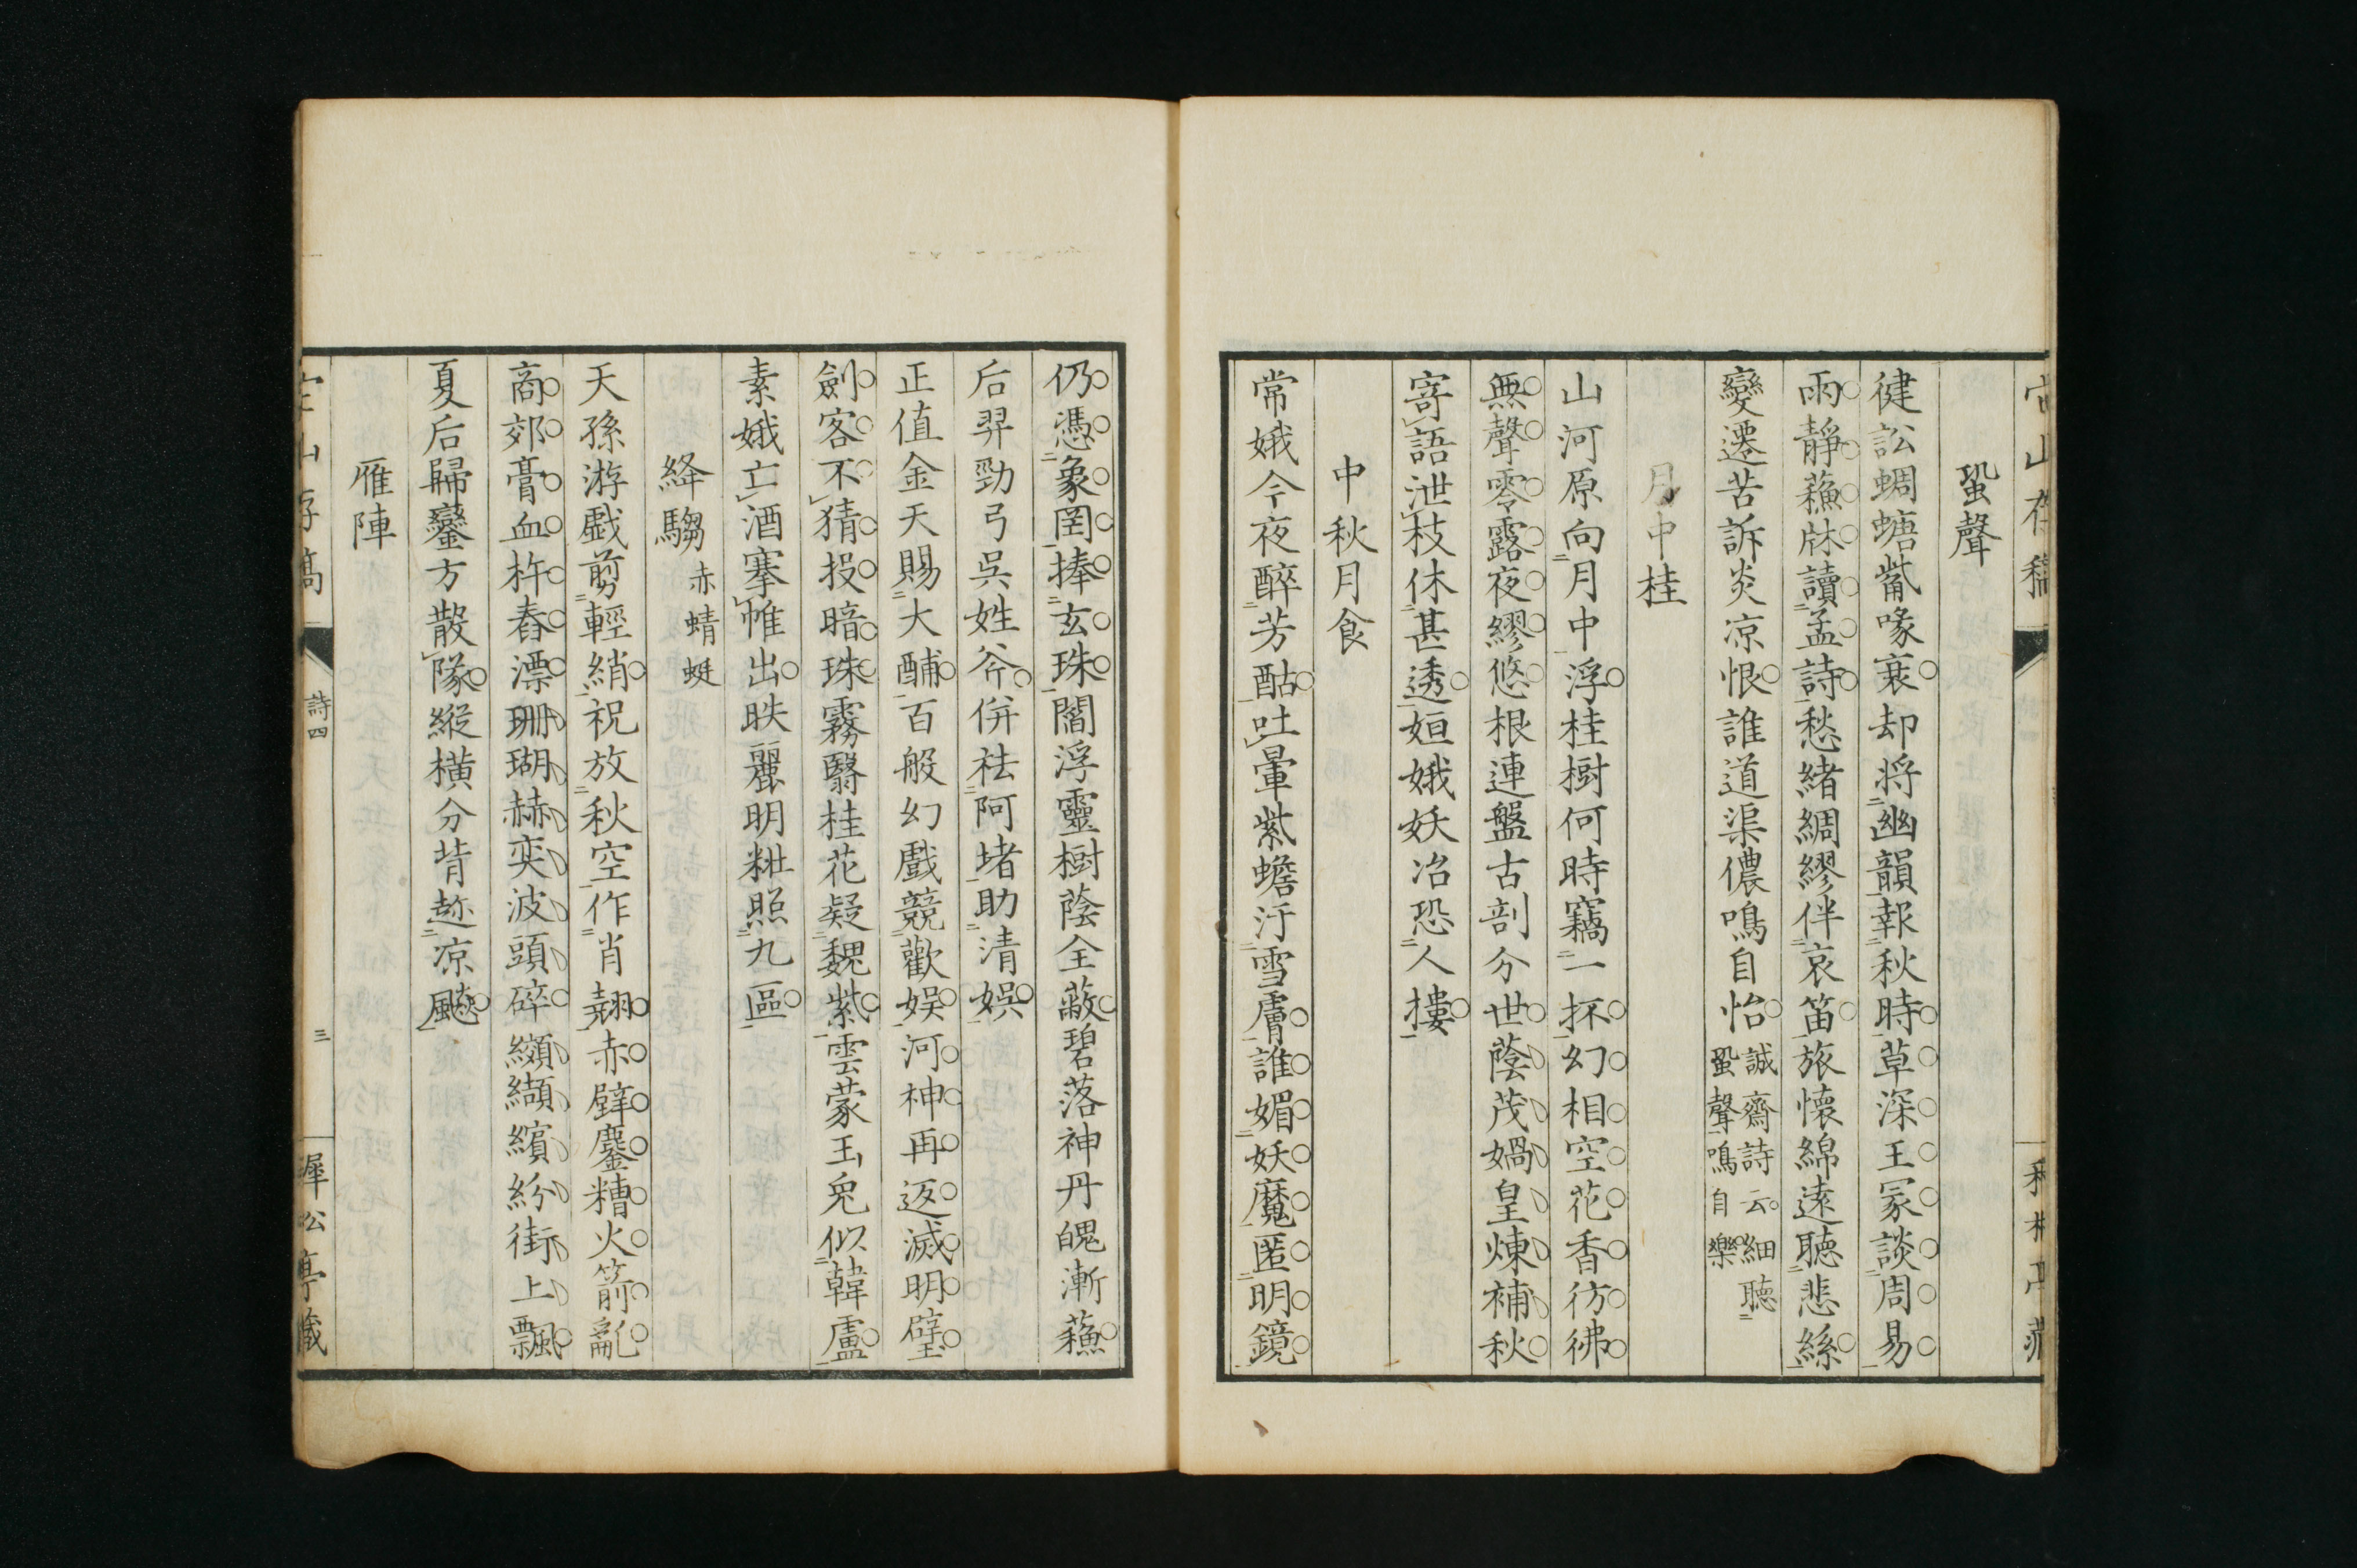 蛩聲
徤訟蜩螗觜喙衰却将幽韻報秋時草深王冢談周易
雨靜蘓牀讀孟詩愁緒綢繆伴哀笛旅懷綿遠聴悲絲
變遷苦訴炎凉恨誰道渠儂鳴自怡誠齋詩云細聴蛩聲鳴自樂
月中桂
山河原向月中浮桂樹何時竊一抔幻相空花香彷彿
無聲零露夜繆悠根連盤古剖分世蔭茂媧皇煉補秋
寄語泄枝休甚透姮娥妖冶恐人摟
中秋月食
常娥今夜醉芳酤吐暈紫蟾汙雪膚誰媚妖魔匿明鏡
仍憑象罔捧玄珠閻浮靈樹蔭全蔽碧落神丹魄漸蘓
后羿勁弓吳姓斧併袪阿堵助清娯
正值金天賜大酺百般幻戲競歡娯河神再返滅明璧
劍客不猜投暗珠霧翳桂花疑魏紫雲蒙玉兎似韓盧
素娥亡酒搴帷出昳麗明粧照九區
絳騶 赤蜻蜓
天孫游戯剪輕綃祝放秋空作肖翹赤壁鏖糟火箭亂
商郊膏血杵舂漂珊瑚赫奕波頭碎纐纈繽紛街上飄
夏后歸鑾方散隊縱橫分背趂凉飇
雁陣
詩四
三
犀公亭藏